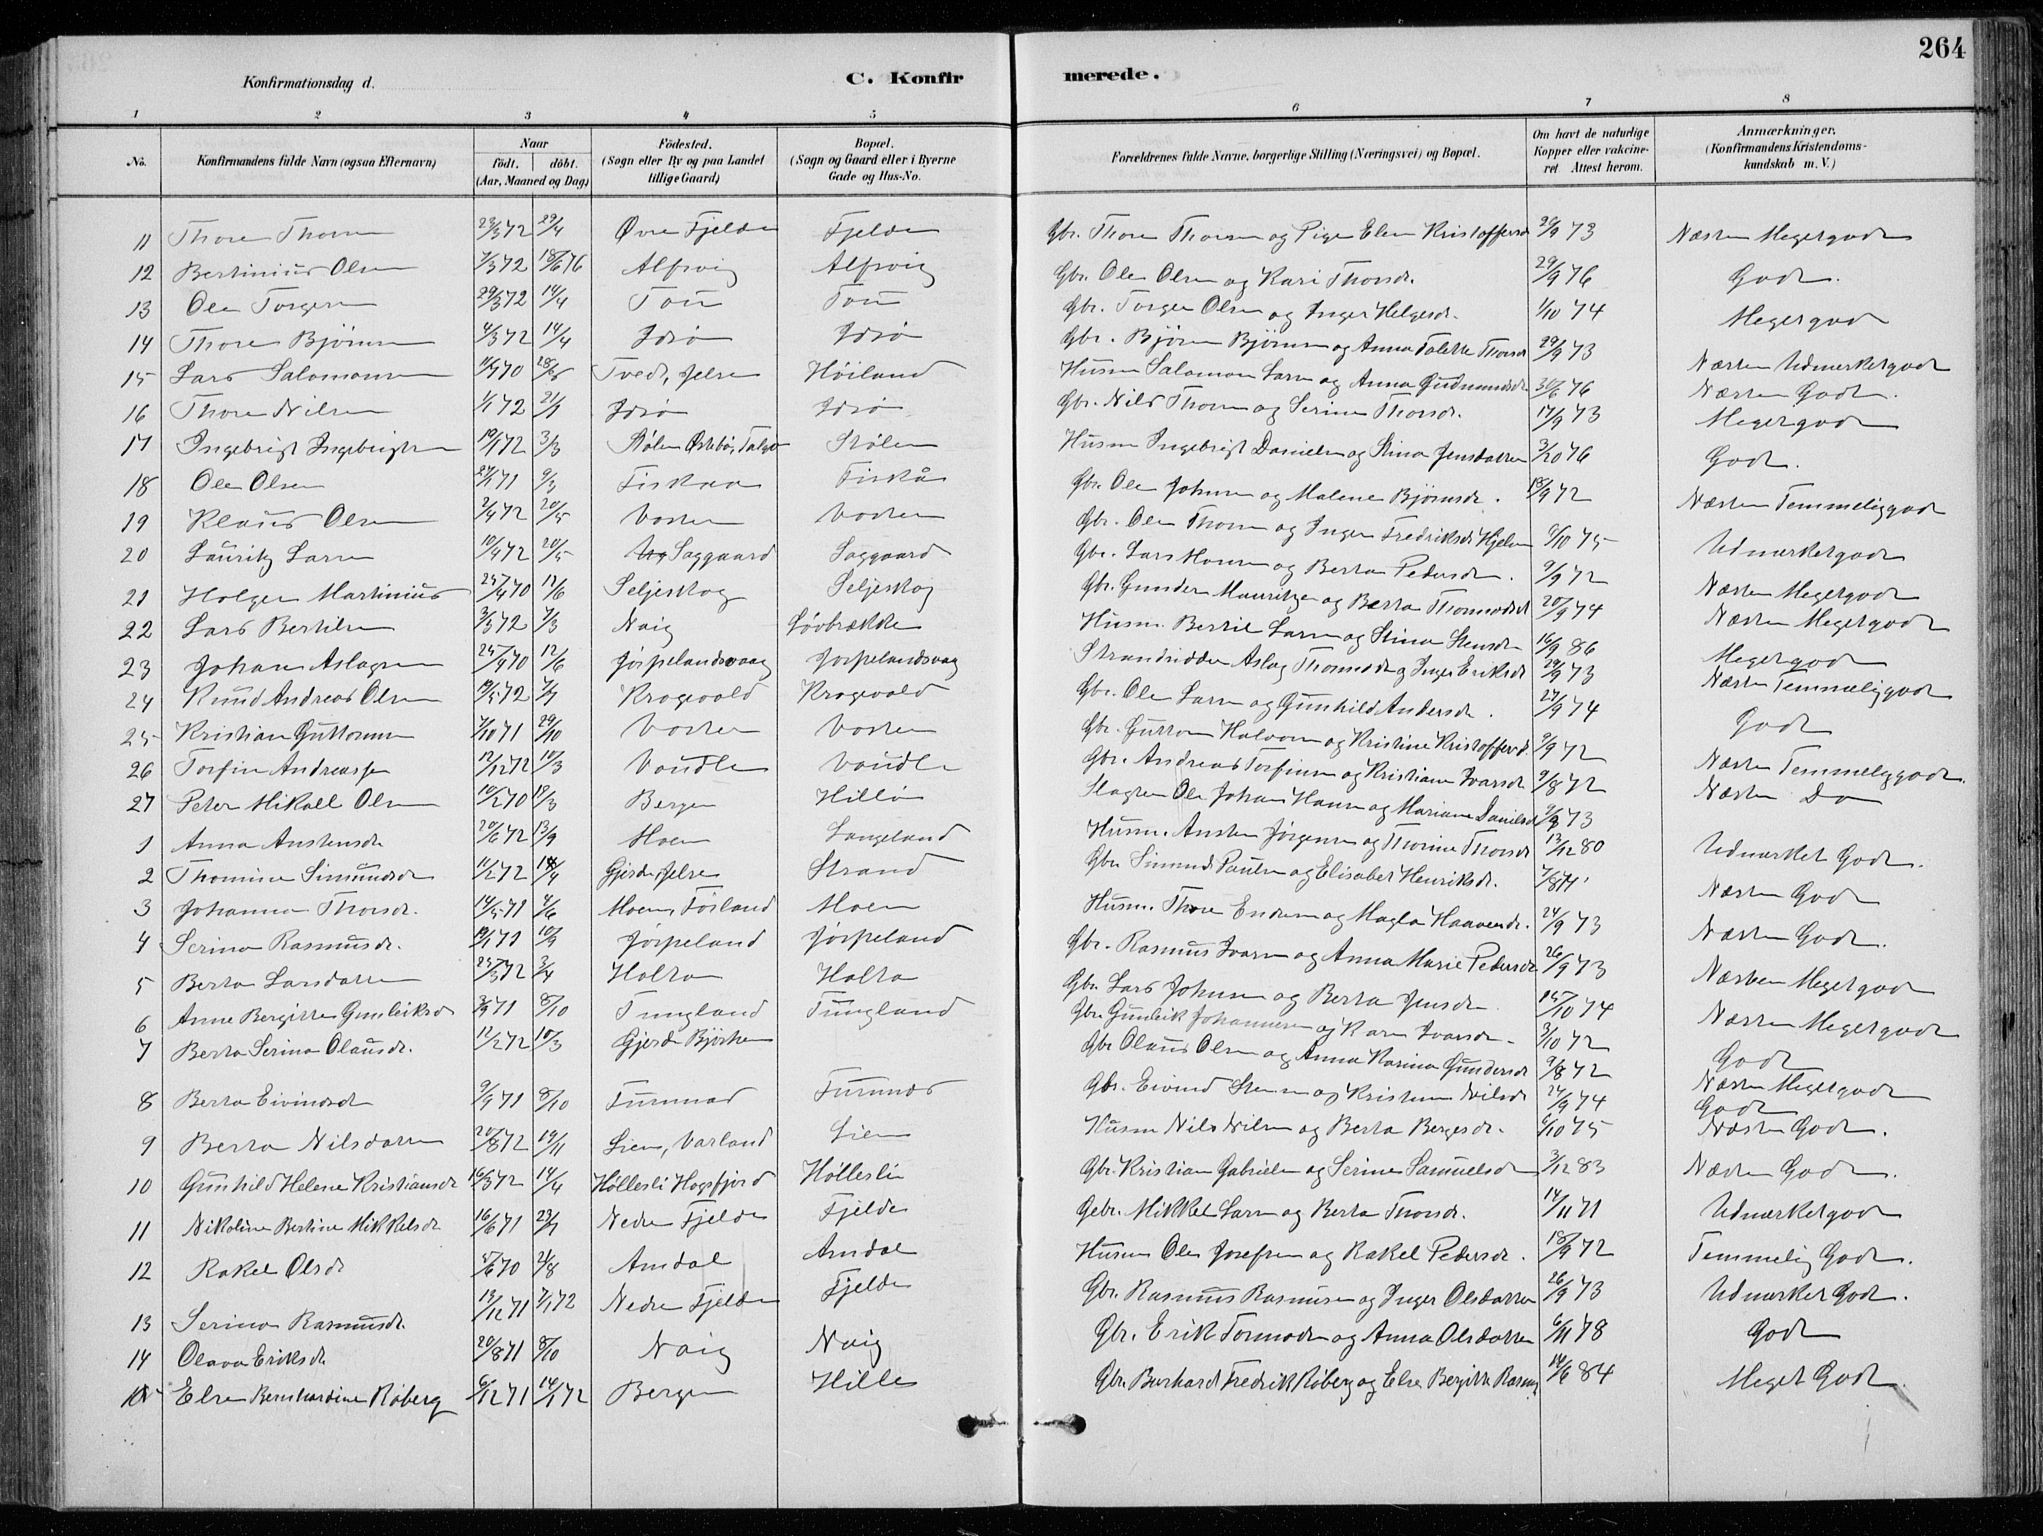 264
Konfirmationsdag d. C. Konfirmerede.
1 2 3 4 5 6 7 8
No. Konfirmandens fulde Navn (ogsaa Efternavn) Naar født. døbt. (Aar, Maaned og Dag) Fødested. (Sogn eller By og paa Landet tillige Gaard) Bopæl. (Sogn og Gaard eller i Byerne Gade og Hus-No. Forældrenes fulde Navne, borgerlige Stilling (Næringsvei) og Bopæl. Om havt de naturlige Kopper eller vakcineret Attest herom. Anmærkninger. (Konfirmandens Kristendomskundskab m. V.)
11 Thore Thorsen 23/3 72 29/4 Øvre Fjelde Fjelde Gbr. Thore Thorsen og Pige Elen Kristoffersd 73 Næsten Megetgodt
12 Bertinius Olsen 7/3 72 18/6 76 Alfsvig Alfsvig Gbr. Ole Olsen og Kari Thorsd. 29/9 76 Godt.
13 Ole Torgersen 29/3 72 14/4 Tou Tou Gbr. Torger Olsen og Inger Helgesd. 1/10 74 Megetgodt
14 Thore Bjørnsen 4/3 72 14/4 Idsø Idsø Gbr. Bjørn Bjørnsen og Anna Talette Thorsd 29/9 73 Næsten Udmærketgodt
15 Lars Salomonsen 70 Tved, Jelse Høiland Husm Salomon Larsen og Anna Gudmundsd 30/6 76 Næsten Godt.
16 Thore Nilsen 1/1 72 21/1 Idsø Idsø Gbr. Nils Thorsen og Serine Thorsd. 17/9 73 Megetgodt
17 Ingebrigt Ingebrigtsen 19/1 72 3/3 Stølen Østebø, Talgø Stølen Husm Ingebrigt Danielsen og Stina Jensdatter 3/10 76 Godt.
18 Ole Olsen 71 9/3 Fiskaa Fiskå Gbr. Ole Johnsen og Malene Bjørnsd. 18/9 72 Næsten Temmeliggodt
19 Klaus Olsen 2/4 72 20/5 Vosten Vosten Gbr. Ole Thorsen og Inger Fredriksd Hjelm 9/10 75 Udmærketgodt
20 Lauritz Larsen 10/4 72 20/5 Saggaard Saggaard Gbr. Lars Hansen og Berta Pedersd. 9/9 72 Næsten Megetgodt
21 Holger Martinius 25/4 70 12/6 Seljeskog Seljeskog Gbr. Gunder Mauritzen og Berta Thormodsd 20/9 74 Næsten Megetgodt
22 Lars Bertilsen 3/3 72 7/3 Naig Løvbrække Husm. Bertil Larsen og Stina Stensd 16/9 86 Megetgodt
23 Johan Aslagsen 25/4 70 12/6 Jørpelandsvaag Jørpelandsvag Strandsidder Aslag Thormods og Inger Eriksd 29/9 73 Næsten Temmeliggodt
24 Knud Andreas Olsen 19/5 72 7/7 Krogevold Krogevold Gbr. Ole Larsen og Gunhild Andersd. 27/9 74 Godt
25 Kristian Guttormsen 7/10 71 29/10 Vosten Vosten Gbr. Guttorm Halvorsen og Kristine Kristoffersd. 9/9 72 Næsten Temmeliggodt.
26 Torfin Andreassen 12/12 72 10/3 Voudle Voudle Gbr. Andreas Torfinsen og Kristiane Ivarsd 9/8 72 Næsten Do
27 Peter Mikall Olsen 10/2 70 19/3 Bergen Hille Slagter Ole Johan Hansen og Mariane Danielsd 73
1 Anna Anstensd. 20/6 72 13/9 Moen Langeland Husm. Ansten Jørgensen og Thorine Thorsd 13/12 80 Udmærket Godt.
2 Thomine Simundsd 11/2 72 14/4 Gjerde, Jelse Strand Gbr. Simund Paulsen og Elisabet Henriksd. 7/8 71 Næsten Godt
3 Johanna Thorsd. 14/5 71 4/6 Moen, Fosland Moen Husm. Thore Endresen og Magla Haavardsd. 24/9 73 Næsten Godt.
4 Serina Rasmusd. 19/1 71 Jørpeland Jørpeland Gbr. Rasmus Ivarsen og Anna Marie Pedersd. 26/9 73 Næsten Megetgodt
5 Berta Larsdatter 25/3 72 3/4 Holta Holta Gbr. Lars Johnsen og Berta Jensd. 15/10 74 Næsten Megetgodt
6 Anne Bergitte Gunleiksd 3/9 71 8/10 Tungland Tungland Gbr. Gunleik Johannesen og Karen Ivarsd. 3/10 72 Godt
7 Berta Serina Olausd. 11/2 72 10/3 Gjerde Bjørheim Gbr Olaus Olsen og Anna Karina Gundersd 9/8 72 Næsten Megetgodt
8 Berta Eivindsd 9/9 71 8/10 Furunes Furunes Gbr. Eivind Stensen og Kristense Nilsd 27/9 74 Godt
9 Berta Nilsdatter 20/8 72 19/11 Lien, Varland Lien Husm Nils Nilsen og Berta Bergesd. 6/10 75 Næsten Godt.
10 Gunhild Helene Kristiansd 16/3 72 14/4 Høllesli Høgsfjord Høllesli Gbr. Kristian Gabrielsen og Serine Samuelsd 3/12 83 Næsten Godt.
11 Nikoline Bertine Mikkelsd 16/6 71 23/7 Nedre Fjelde Fjelde Gbr. Mikkel Larsen og Berta Thorsd. 14/11 71 Udmærketgodt
12 Rakel Olsd 5/6 70 2/8 Amdal Amdal Husm Ole Josefsen og Rakel Pedersd. 18/9 72 Temmelig Godt.
13 Serina Rasmusd. 13/12 71 7/1 72 Nedre Fjelde Fjelde Gbr. Rasmus Rasmusen og Inger Olsdatter 26/9 73 Udmærket Godt.
14 Olava Eriksd. 20/8 71 8/10 Naig Naig Gbr. Erik Tormodsen og Anna Olsdatter 6/11 78 Godt
15 Else Bernhardine Røberg 6/12 71 14/1 72 Bergen Hille Gbr. Burhard Fredrik Røberg og Else Bergitte Rasmus 14/6 84 Meget Godt.